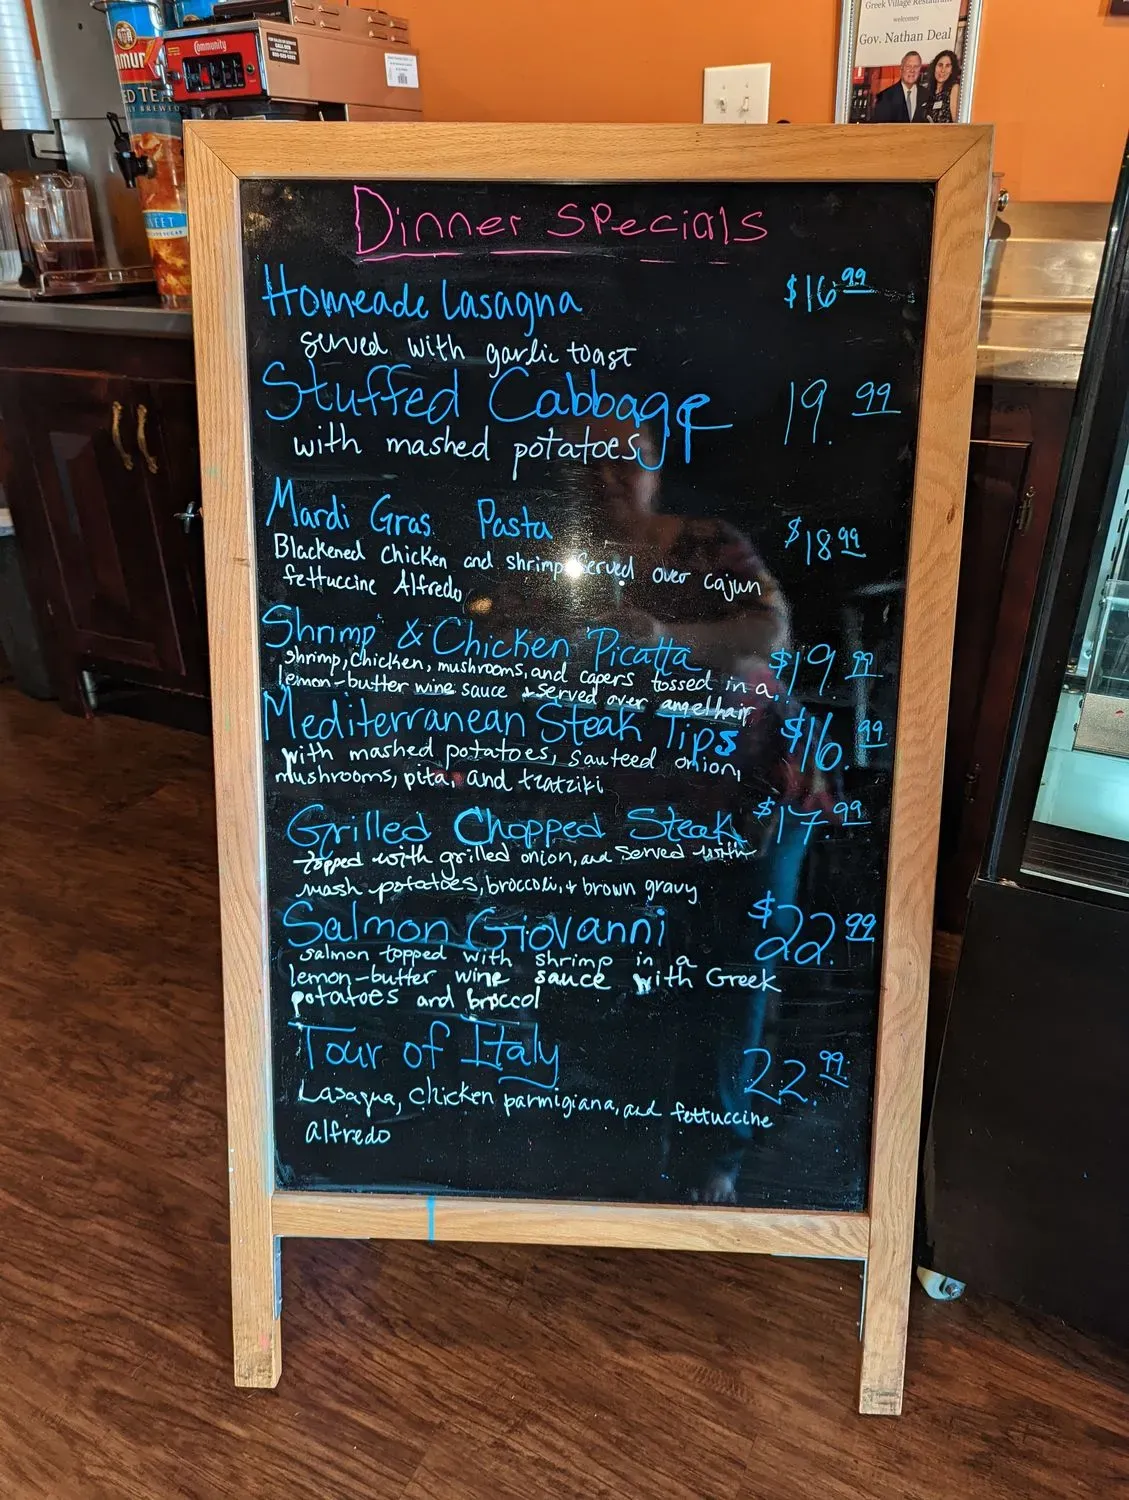 Greek Village Restaurant
welcomes
Gov. Nathan Deal
Community
Dinner Specials
Homeade Lasagna $16.99
served with garlic toast
Stuffed Cabbage 19.99
with mashed potatoes
Mardi Gras Pasta $18.99
Blackened chicken and shrimp served over cajun
fettuccine Alfredo
Shrimp & Chicken Picatta $19.99
shrimp, chicken, mushrooms, and capers tossed in a
lemon-butter wine sauce & served over angelhair
Mediterranean Steak Tips $16.99
with mashed potatoes, sauteed onion,
mushrooms, pita, and tzatziki
Grilled Chopped Steak $17.99
topped with grilled onion, and served with
mash potatoes, broccoli, + brown gravy
Salmon Giovanni $22.99
salmon topped with shrimp in a
lemon-butter wine sauce with Greek
potatoes and broccol
Tour of Italy 22.99
Lasagna, chicken parmigiana, and fettuccine
alfredo